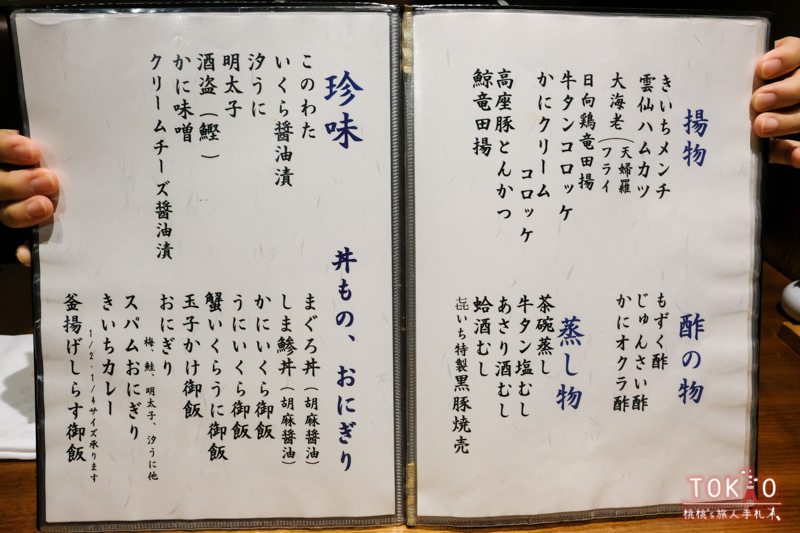 揚物
きいちメンチ
雲仙ハムカツ
大海老(天婦羅
フライ
日向鶏竜田揚
牛タンコロッケ
かにクリーム
コロッケ
高座豚とんかつ
鯨竜田揚
酢の物
もずく酢
じゅんさい酢
かにオクラ酢
蒸し物
茶碗蒸し
牛タン塩むし
あさり酒むし
蛤酒むし
㐂いち特製黒豚焼売
珍味
このわた
いくら醤油漬
汐うに
明太子
酒盗(鰹)
かに味噌
クリームチーズ醤油漬
丼もの、おにぎり
まぐろ丼(胡麻醤油)
しま鯵丼(胡麻醤油)
かにいくら御飯
うにいくら御飯
蟹いくらうに御飯
玉子かけ御飯
おにぎり
梅、鮭、明太子、汐うに他
スパムおにぎり
きいちカレー
1/2・1/4サイズ承ります
釜揚げしらす御飯
TOKYO
桃桃's旅人手札